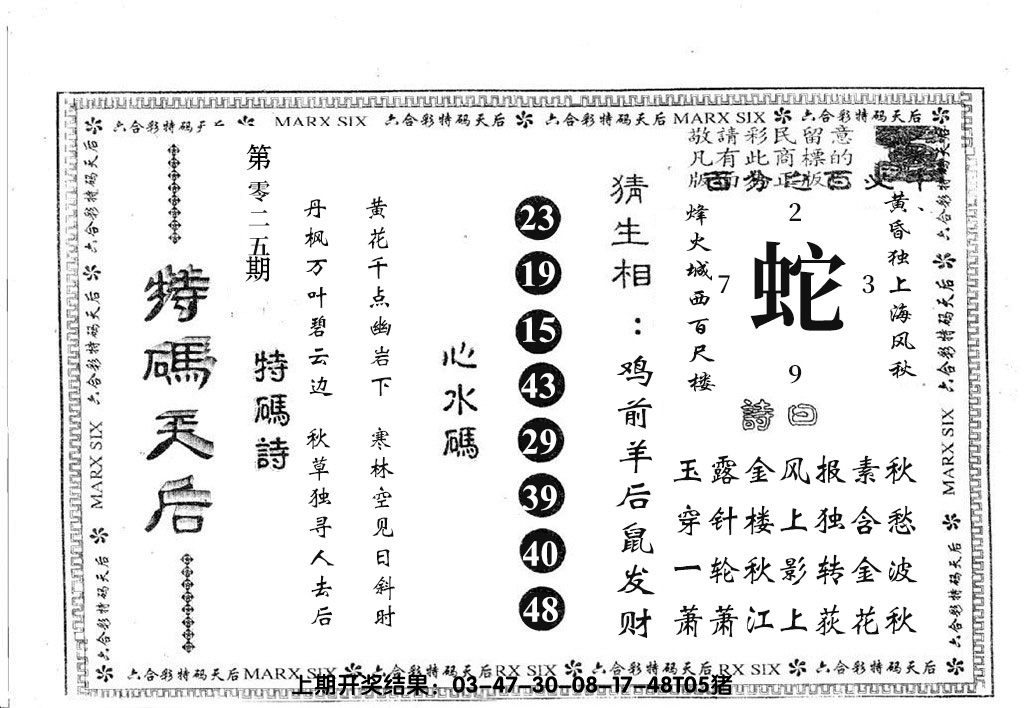 六合彩特码天后 MARX SIX 六合彩特码天后 六合彩特码天后 MARX SIX 六合彩特码天后
敬請彩民留意
凡有此商標的
黄昏独上海风秋
2
7
蛇
3
9
烽火城西百尺楼
詩曰
玉露金风报素秋
穿针楼上独含愁
一轮秋影转金波
萧萧江上荻花秋
猜生相：鸡前羊后鼠发财
23
19
15
43
29
39
40
48
心水碼
黄花千点幽岩下 寒林空见日斜时
丹枫万叶碧云边 秋草独寻人去后
特碼詩
第零二五期
特碼天后
六合彩特码天后
六合彩特码天后
MARX SIX
六合彩特码天后
六合彩特码天后
六合彩特码天后
MARX SIX
六合彩特码天后
六合彩特码天后MARX SIX 六合彩特码天后RX SIX 六合彩特码天后RX SIX 六合彩特码天后
上期开奖结果：03-47-30-08-17-48T05猪